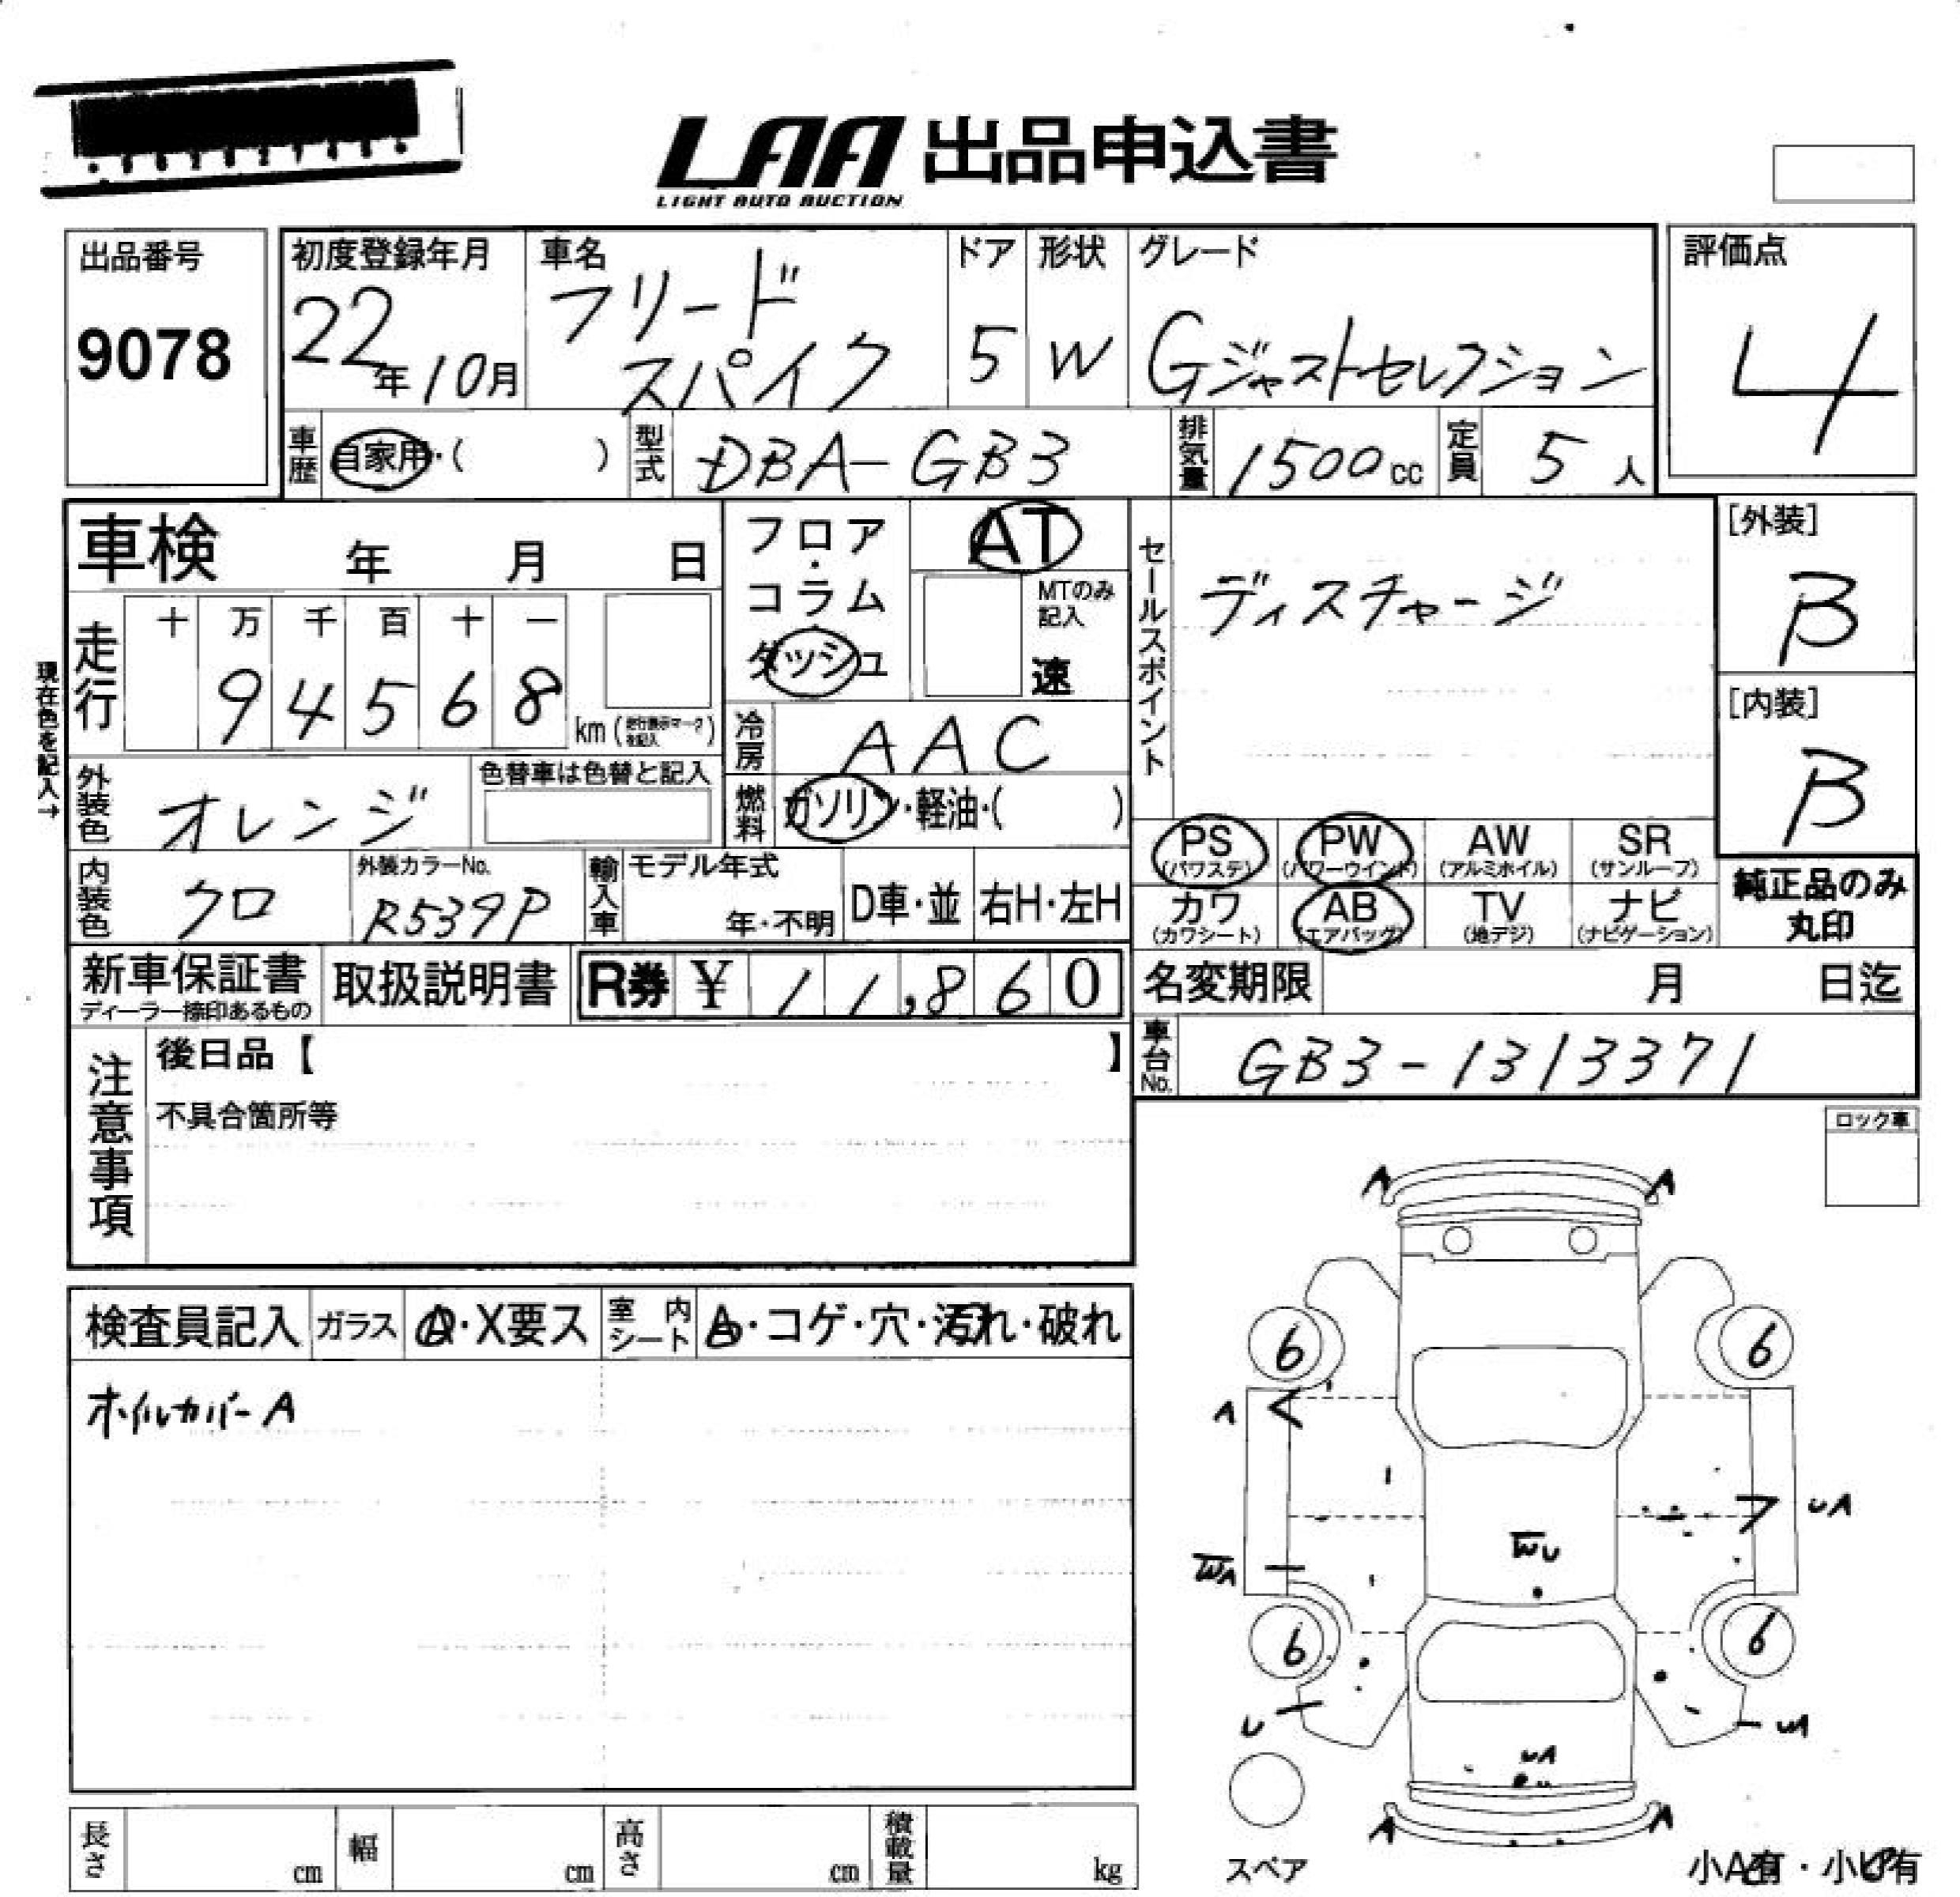 LAA 出品申込書
LIGHT AUTO AUCTION
出品番号
9078
初度登録年月
22年10月
車名
フリード
スパイク
ドア
5
形状
W
グレード
Gジャストセレクション
評価点
4
車歴
自家用・( )
型式
DBA-GB3
排気量
1500cc
定員
5人
車検 年 月 日
フロア・コラム ダッシュ
AT
MTのみ記入
速
セールスポイント
ディスチャージ
[外装]
B
[内装]
B
現在色を記入→
走行
十 万 千 百 十 一
9 4 5 6 8
km(走行表示マークを記入)
冷房
AAC
外装色
オレンジ
色替車は色替と記入
燃料
ガソリン・軽油・( )
PS
(パワステ)
PW
(パワーウインド)
AW
(アルミホイル)
SR
(サンルーフ)
内装色
クロ
外装カラーNo.
R539P
輸入車
モデル年式
年・不明
D車・並
右H・左H
カワ
(カワシート)
AB
(エアバッグ)
TV
(地デジ)
ナビ
(ナビゲーション)
純正品のみ
丸印
新車保証書
ディーラー捺印あるもの
取扱説明書
R券 ¥ 11,860
名変期限 月 日迄
注意事項
後日品【 】
不具合箇所等
車台No.
GB3-1313371
ロック車
検査員記入
ガラス
A・X要ス
室内シート
A・コゲ・穴・汚れ・破れ
ホイルカバーA
A A
6 6
A
UA
WA
WU
6 6
U
UA
UA
A A
スペア
小A有・小U有
長さ cm
幅 cm
高さ cm
積載量 kg